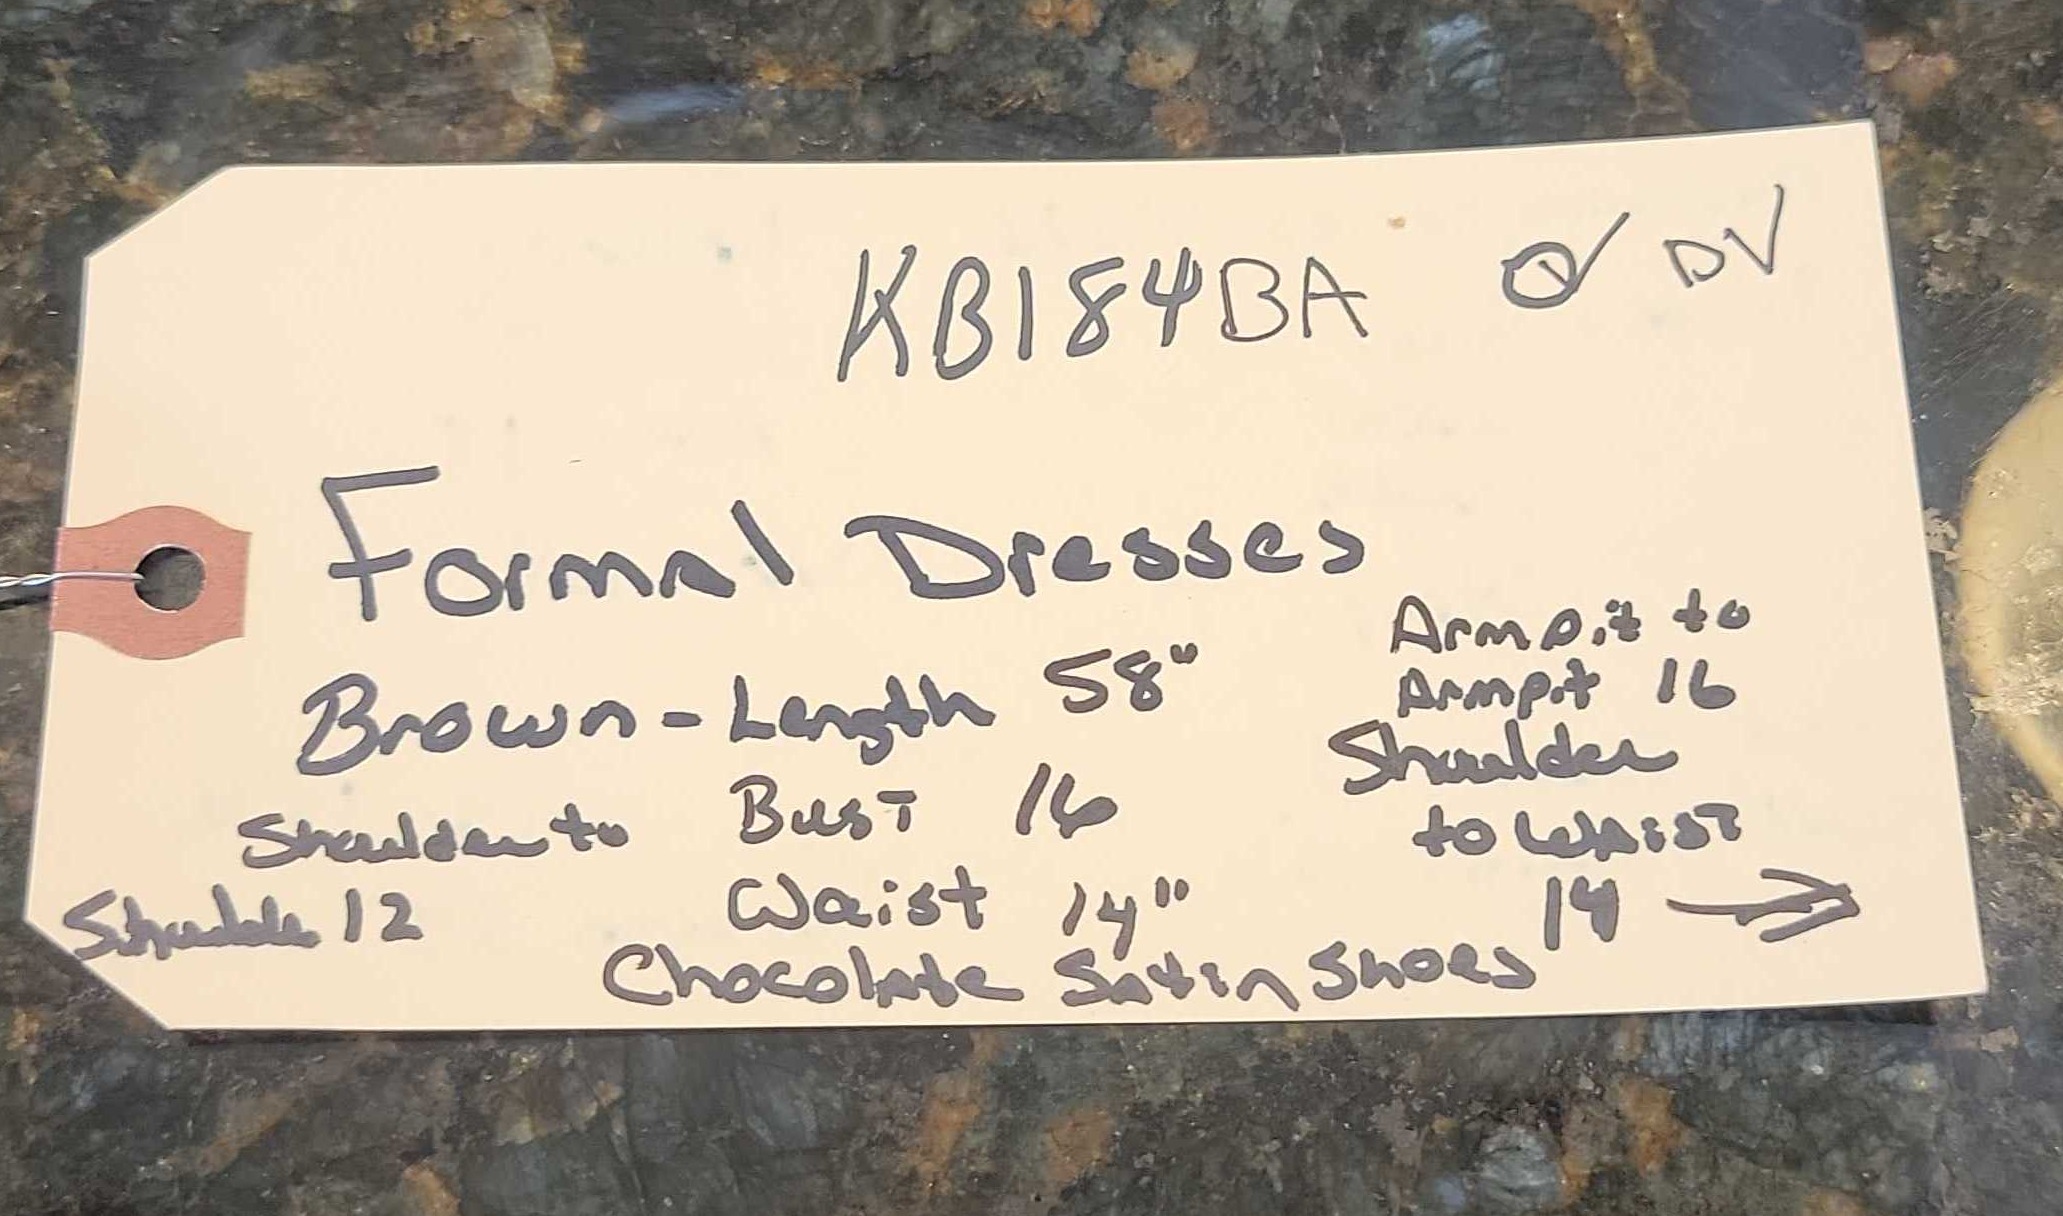 KB184BA DV
Formal Dresses
Brown - Length 58"
Bust 16
Waist 14"
Shoulder to
Shoulder 12
Armpit to
Armpit 16
Shoulder
to Waist
14 →
Chocolate Satin Shoes